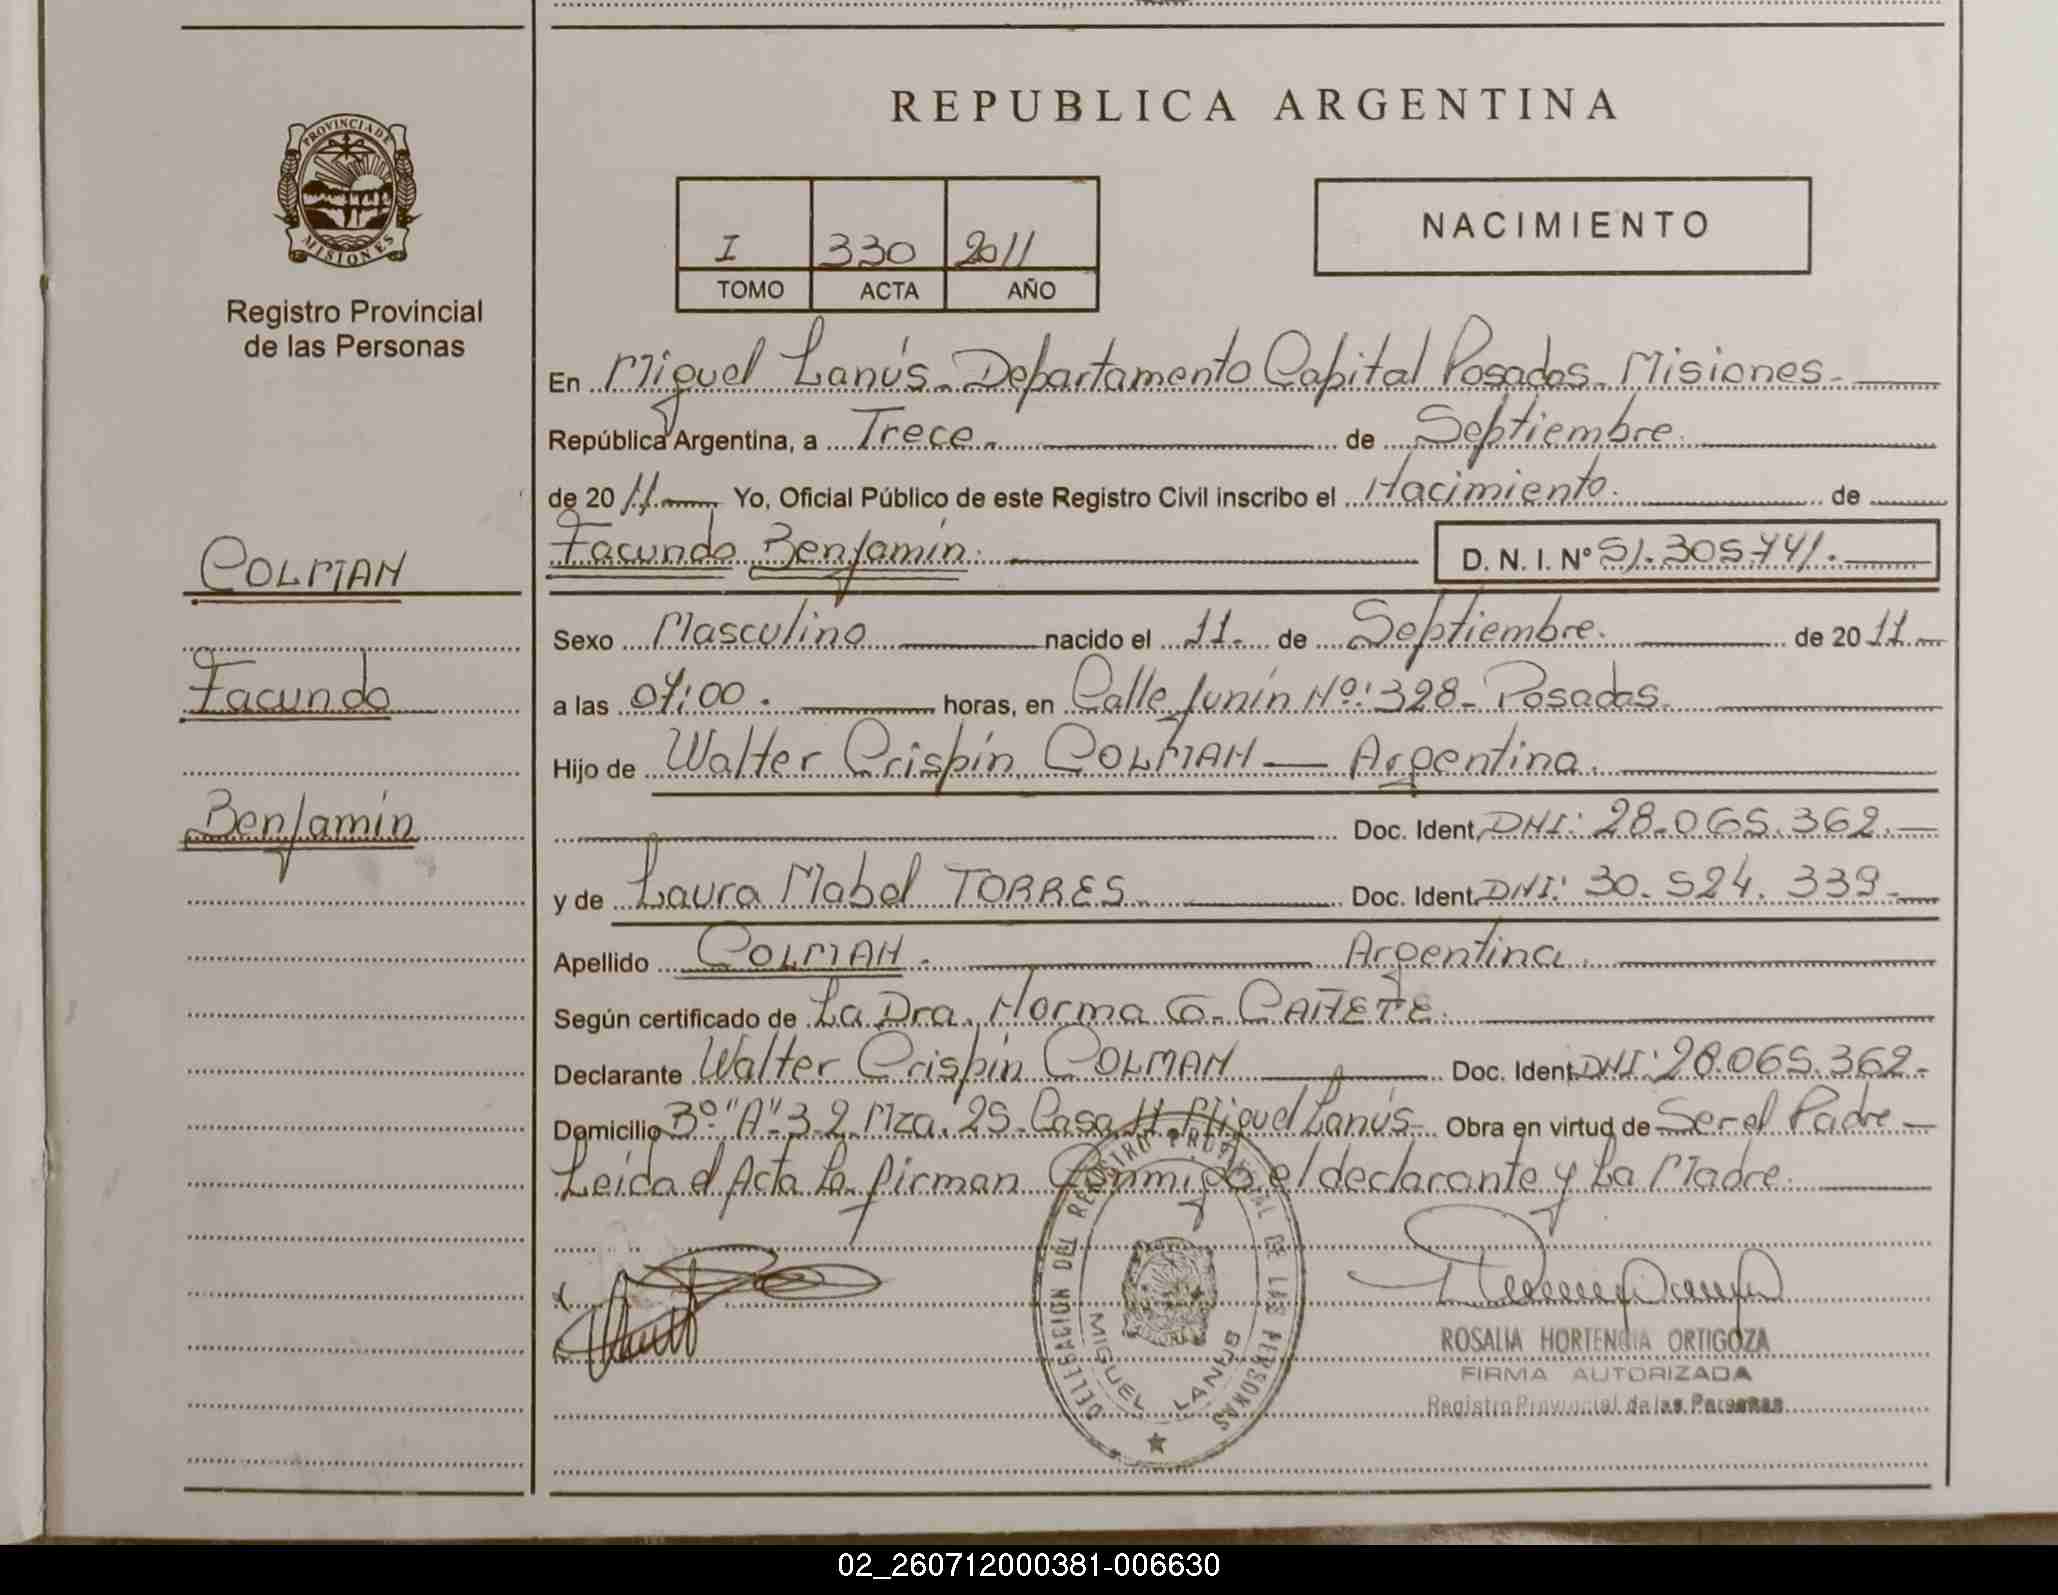 REPUBLICA ARGENTINA
PROVINCIA DE MISIONES
Registro Provincial
de las Personas
I 330 2011
TOMO ACTA AÑO
NACIMIENTO
En Miguel Lanús - Departamento Capital Posadas - Misiones -
República Argentina, a Trece - de Septiembre
de 20 11 Yo, Oficial Público de este Registro Civil inscribo el Nacimiento de
COLMAN
Facundo Benjamín D. N. I. Nº 51.305.741.
Sexo Masculino nacido el 11 - de Septiembre. de 20 11
Facundo
a las 07:00. horas, en Calle Junín Nº: 328 - Posadas.
Hijo de Walter Crispín COLMAN — Argentina.
Benjamín
Doc. Ident. DNI: 28.065.362. —
y de Laura Mabel TORRES Doc. Ident. DNI: 30.524.339. —
Apellido COLMAN - Argentina.
Según certificado de La Dra. Norma G. CAÑETE.
Declarante Walter Crispín COLMAN Doc. Ident. DNI: 28.065.362 -
Domicilio Bº "A" 3-2 Mza. 25 - Casa 11 Miguel Lanús - Obra en virtud de Ser el Padre —
Leída el Acta La firman Conmigo el declarante y La Madre.
DELEGACION DEL REGISTRO PROVINCIAL DE LAS PERSONAS
MIGUEL LANUS
ROSALIA HORTENCIA ORTIGOZA
FIRMA AUTORIZADA
Registro Provincial de las Personas
02_260712000381-006630